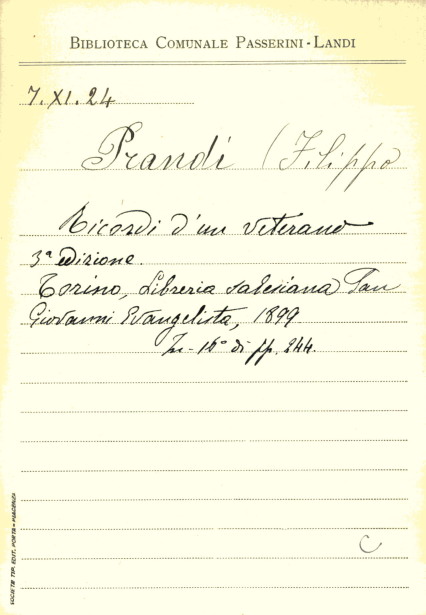 BIBLIOTECA COMUNALE PASSERINI-LANDI
7. XI. 24
Prandi (Filippo
Ricordi d'un veterano
3ª edizione.
Torino, Libreria salesiana San
Giovanni Evangelista, 1899
In-16° di pp. 244.
C
SOCIETÀ TIP. EDIT. PORTA - PIACENZA